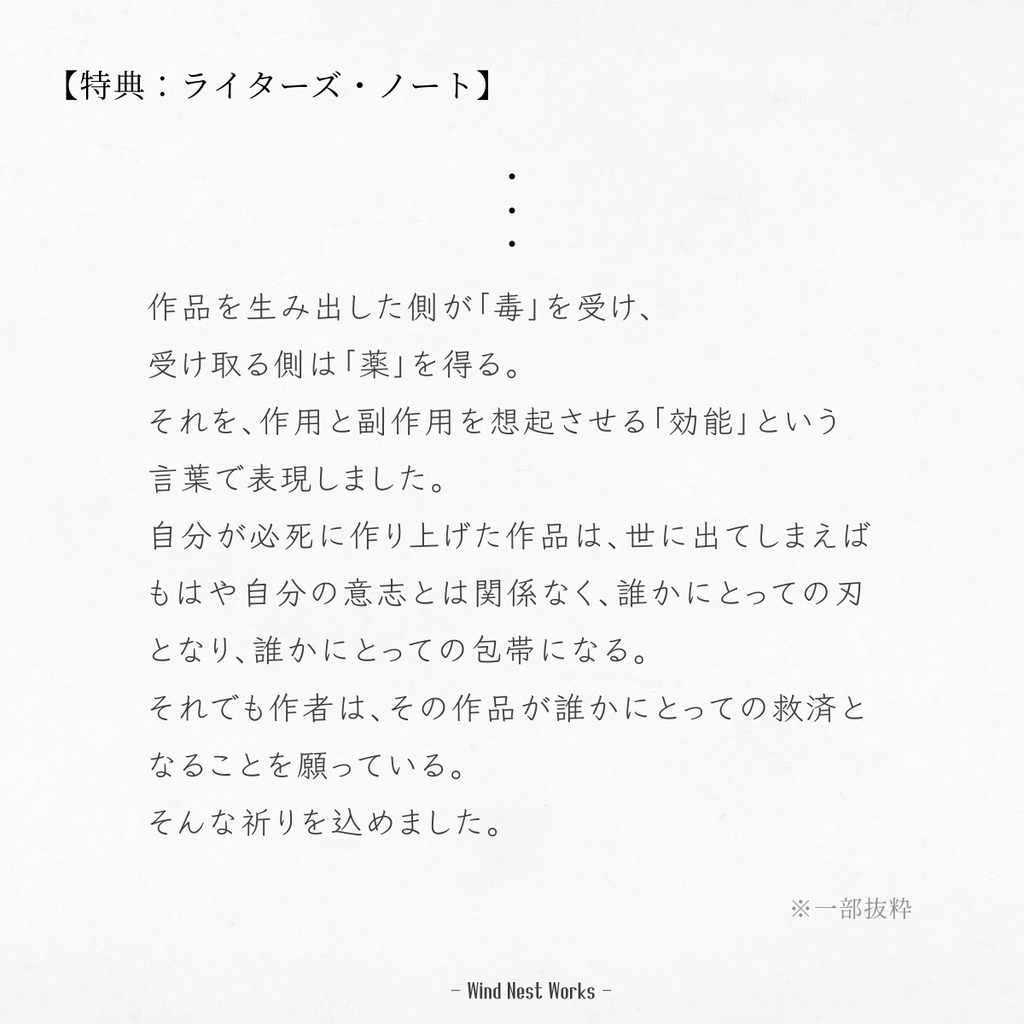 【特典：ライターズ・ノート】
・
・
・
作品を生み出した側が「毒」を受け、
受け取る側は「薬」を得る。
それを、作用と副作用を想起させる「効能」という
言葉で表現しました。
自分が必死に作り上げた作品は、世に出てしまえば
もはや自分の意志とは関係なく、誰かにとっての刃
となり、誰かにとっての包帯になる。
それでも作者は、その作品が誰かにとっての救済と
なることを願っている。
そんな祈りを込めました。
※一部抜粋
– Wind Nest Works –